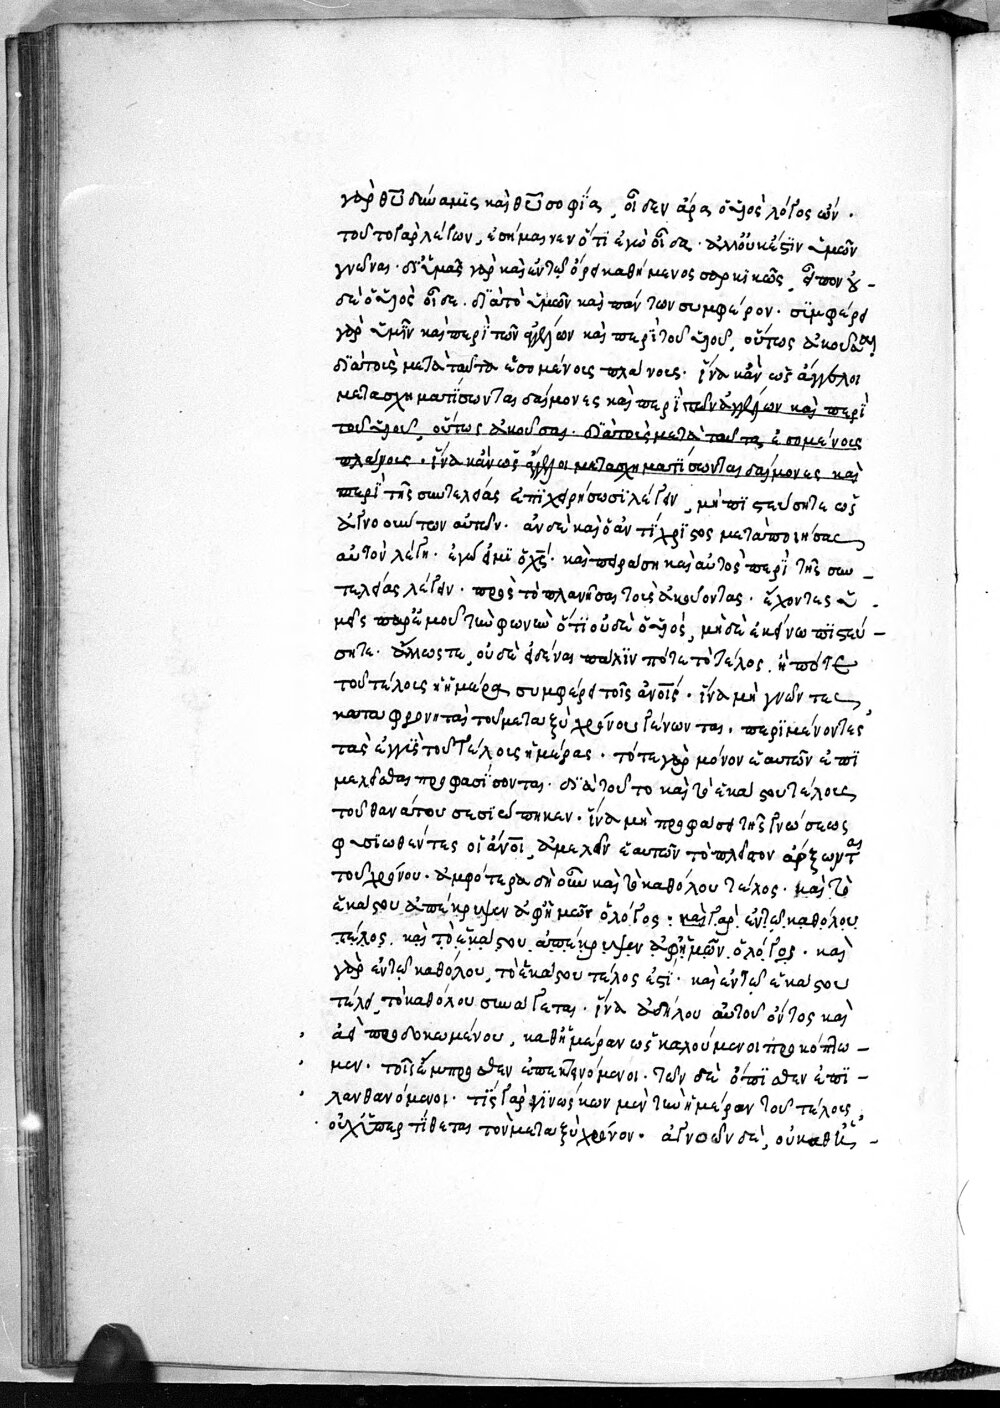 γὰρ θῦ δύναμις καὶ θῦ σοφία, οἶδεν ἄρα ὁ υἱὸς λόγος ὤν.
τοῦτο γὰρ λέγων, ἐσήμαινεν ὅτι ἐγὼ οἶδα. ἀλλ' οὐκ ἔστιν ὑμῶν
γνῶναι. δι' ὑμᾶς γὰρ καὶ ἐν τῷ ὄρει καθήμενος σαρκικῶς, εἶπον οὐ-
δὲ ὁ υἱὸς οἶδε. διὰ τὸ ὑμῶν καὶ πάντων συμφέρον. συμφέρει
γὰρ ὑμῖν καὶ περὶ τῶν ἀγγέλων καὶ περὶ τοῦ υἱοῦ, οὕτως ἀκοῦσαι
διὰ τοὺς μετὰ ταῦτα ἐσομένους πλάνους. ἵνα κἂν ὡς ἄγγελοι
μετασχηματίσωνται δαίμονες καὶ περὶ τῶν ἀγγέλων καὶ περὶ
τοῦ υἱοῦ, οὕτως ἀκοῦσαι. διὰ τοὺς μετὰ ταῦτα ἐσομένους
πλάνους. ἵνα κἂν ὡς ἄγγελοι μετασχηματίσωνται δαίμονες καὶ
περὶ τῆς συντελείας ἐπιχειρήσωσι λέγειν, μὴ πιστεύσητε ὡς
ἀγνοούντων αὐτῶν. ἂν δὲ καὶ ὁ ἀντίχριστος μεταποιήσας
αὑτὸν λέγῃ. ἐγώ εἰμι ὁ χς. καὶ πειράσῃ καὶ αὐτὸς περὶ τῆς συν-
τελείας λέγειν. πρὸς τὸ πλανῆσαι τοὺς ἀκούοντας. ἔχοντες ὑ-
μεῖς παρ' ἐμοῦ τὴν φωνὴν ὅτι οὐδὲ ὁ υἱός, μὴ δὲ ἐκείνῳ πιστεύ-
σητε. ἄλλως τε, οὐδὲ εἰδέναι πάλιν πότε τὸ τέλος, ἢ πότε
τοῦ τέλους ἡ ἡμέρα συμφέρει τοῖς ἀνοις. ἵνα μὴ γνῶντες
καταφρονηταὶ τοῦ μεταξὺ χρόνου γένωνται. περιμένοντες
τὰς ἐγγὺς τοῦ τέλους ἡμέρας. τότε γὰρ μόνον ἑαυτῶν ἐπι
μελεῖσθαι προφασίσονται. διὰ τοῦτο καὶ τὸ ἑκάστου τέλους
τοῦ θανάτου σεσιώπηκεν. ἵνα μὴ προφάσει τῆς γνώσεως
φυσιωθέντες οἱ ἄνοι, ἀμελεῖν ἑαυτῶν τὸ πλεῖστον ἄρξωνται
τοῦ χρόνου. ἀμφότερα δὴ οὖν καὶ τὸ καθόλου τέλος. καὶ τὸ
ἑκάστου ἀπέκρυψεν ἀφ' ἡμῶν ὁ λόγος. καὶ γὰρ ἐν τῷ καθόλου
τέλος. καὶ τὸ ἑκάστου ἀπέκρυψεν ἀφ' ἡμῶν ὁ λόγος. καὶ
γὰρ ἐν τῷ καθόλου, τὸ ἑκάστου τέλος ἐστί. καὶ ἐν τῷ ἑκάστου
τέλει, τὸ καθόλου συνάγεται. ἵνα ἀδήλου αὐτοῦ ὄντος καὶ
ἀεὶ προσδοκωμένου, καθ' ἡμέραν ὡς καλούμενοι προκόπτω-
μεν. τοῖς ἔμπροσθεν ἐπεκτεινόμενοι. τῶν δὲ ὄπισθεν ἐπι-
λανθανόμενοι. τίς γὰρ γινώσκων μὲν τὴν ἡμέραν τοῦ τέλους,
οὐχ ὑπερτίθεται τὸν μεταξὺ χρόνον. ἀγνοῶν δέ, οὐ καθ'